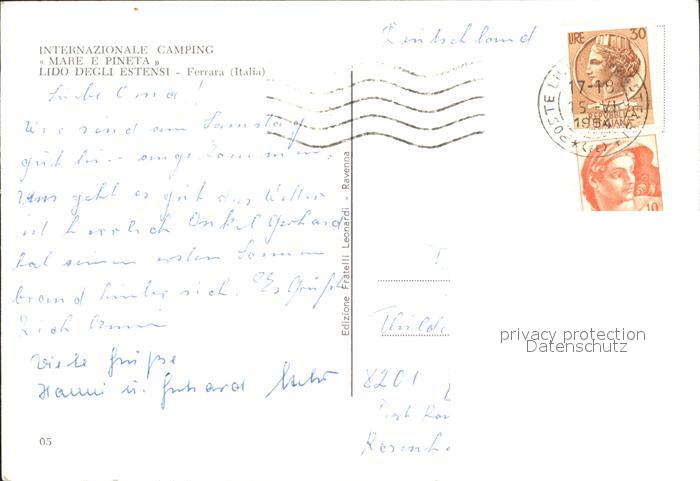 INTERNAZIONALE CAMPING
« MARE E PINETA »
LIDO DEGLI ESTENSI - Ferrara (Italia)
Liebe Oma!
Wir sind am Samstag
gut hier angekommen.
Uns geht es gut das Wetter
ist herrlich Onkel Gerhard
hat seinen ersten Sonnen
brand hinter sich. Es Grüßt
Dich
Viele Grüße
Hanni u. Gerhard
05
Edizione Fratelli Leonardi - Ravenna
Deutschland
LIRE 30
REPVBBLICA
ITALIANA
POSTE
17-18
15-VI
1964
(FE)
10
8201
privacy protection
Datenschutz